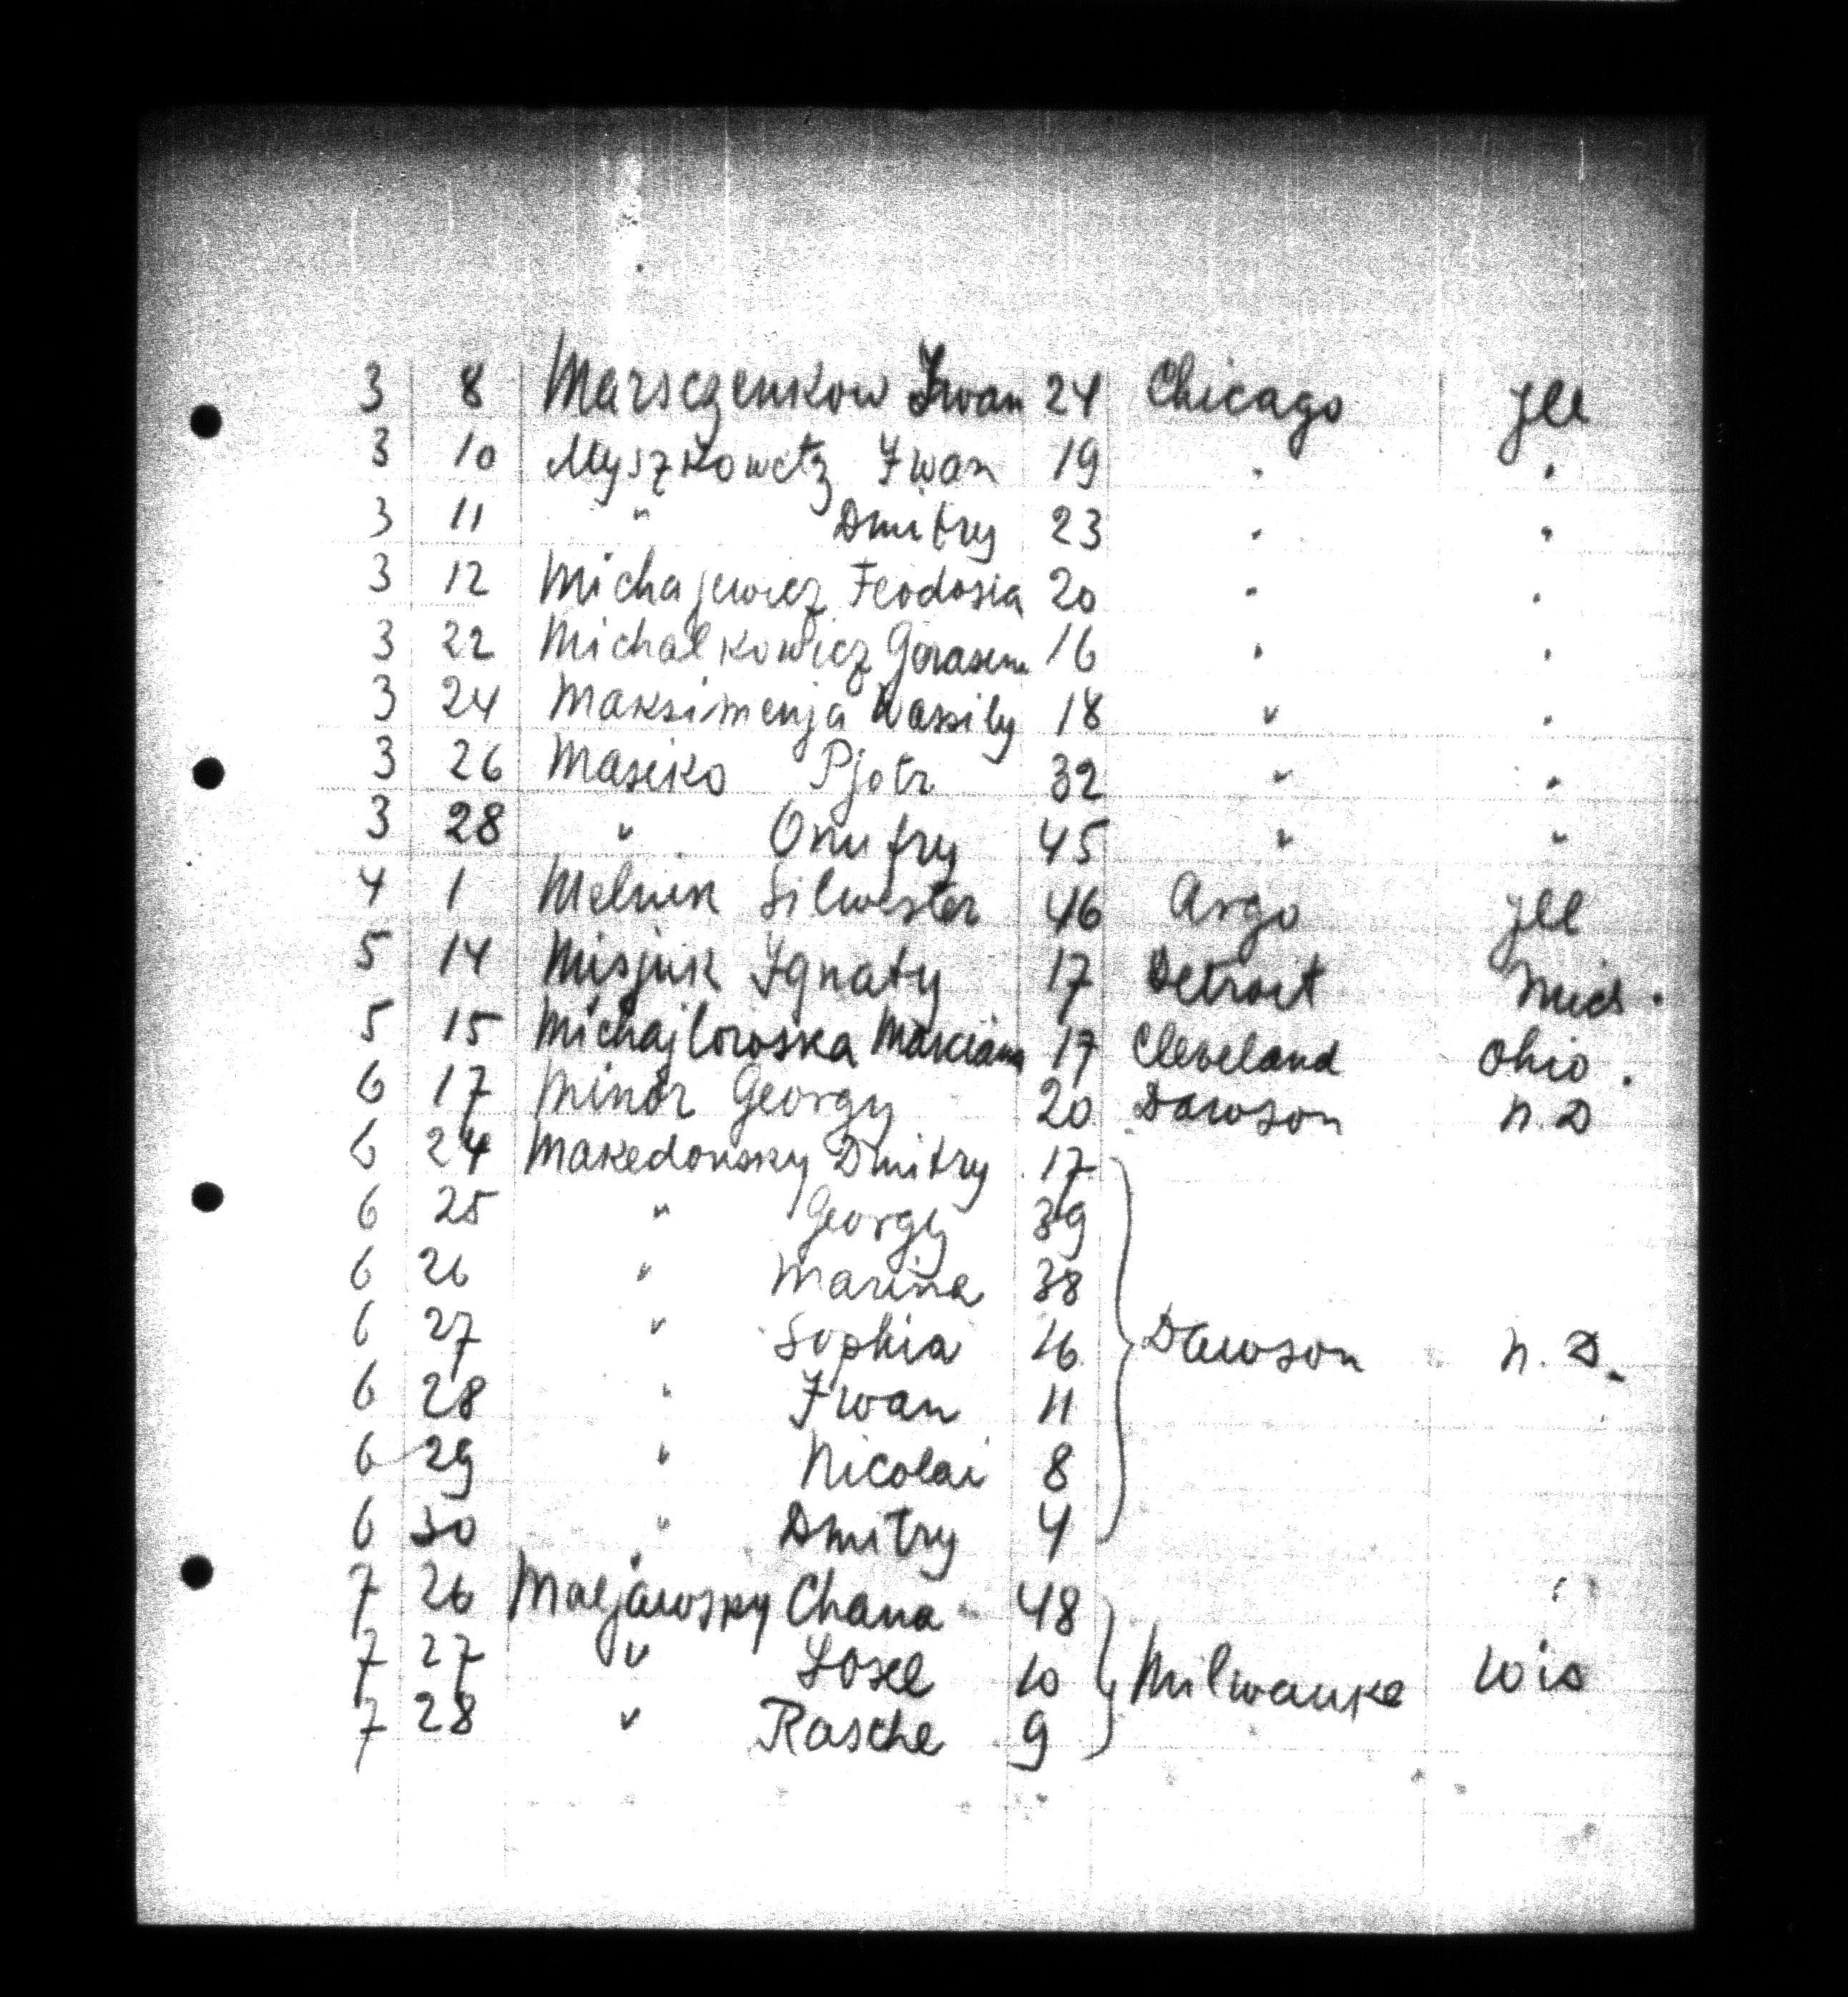 3 8 Marsczenkow Iwan 24 Chicago Ill
3 10 Myszkowetz Iwan 19 " "
3 11 " Dmitry 23 " "
3 12 Michajewicz Feodosia 20 " "
3 22 Michalkowicz Gerasem 16 " "
3 24 Maksimenja Wassily 18 " "
3 26 Maseko Pjotr 32 " "
3 28 " Onufry 45 " "
4 1 Melnik Silwester 46 Argo Ill
5 14 Misjuk Ignaty 17 Detroit Mich.
5 15 Michajlowska Marciana 17 Cleveland Ohio.
6 17 Minor Georgy 20 Dawson N.D
6 24 Makedonsky Dmitry 17
6 25 " Georgy 39
6 26 " Marina 38
6 27 " Sophia 16 Dawson N.D.
6 28 " Iwan 11
6 29 " Nicolai 8
6 30 " Dmitry 4
7 26 Maljawsky Chana 48
7 27 " Josel 10 Milwauke Wis
7 28 " Rasche 9